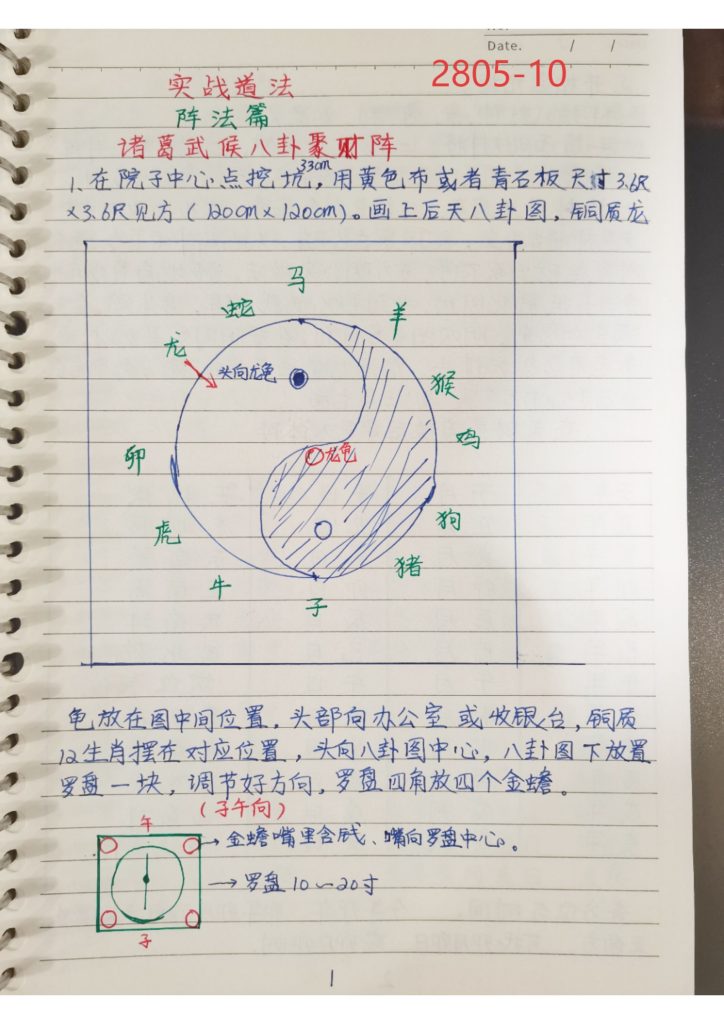 Date. / /
2805-10
实战道法
阵法篇
诸葛武侯八卦聚财阵
1、在院子中心点挖坑33cm，用黄色布或者青石板尺寸3.6尺
×3.6尺见方（120cm×120cm）。画上后天八卦图，铜质龙
马
蛇
羊
龙
头向龙龟
猴
鸡
卯
龙龟
虎
狗
猪
牛
子
龟放在图中间位置，头部向办公室或收银台，铜质
12生肖摆在对应位置，头向八卦图中心，八卦图下放置
罗盘一块，调节好方向，罗盘四角放四个金蟾。
（子午向）
午
→金蟾嘴里含钱、嘴向罗盘中心。
→罗盘10~20寸
子
1